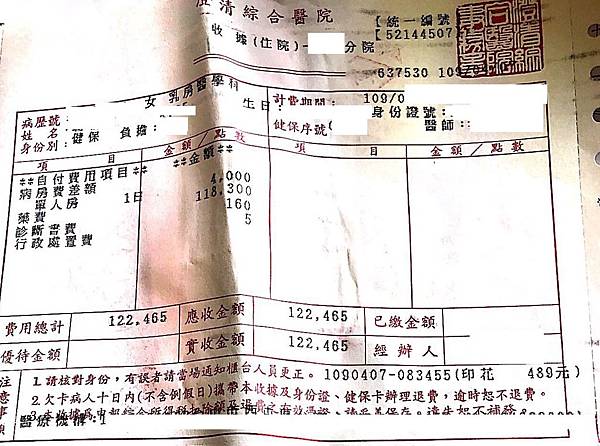 澄清綜合醫院
【統一編號
收據(住院)- 分院
【52144507】
637530 109/04
女 乳房醫學科
病歷號:
生日
計當期間: 109/0
姓名:
身份證號:
身份別: 健保 負擔:
健保序號(
醫師::
項 目 金額/點數 項 目 金額/點數
**自付費用項目** **金額**
病房費差額 4,000
單人房 1日
藥費 118,300
診斷書費 160
行政處置費 5
費用總計 122,465 應收金額 122,465 已繳金額
優待金額 實收金額 122,465 經辦人
注意事項
1.請核對身份,有誤者請當場通知櫃台人員更正。 1090407-083455(印花 489元)
2.欠卡病人十日內(不含例假日)攜帶本收據及身份證、健保卡辦理退費,逾時恕不退費。
3.本收據為申報綜合所得稅扣除額及退費之有效憑證,請妥善保存。遺失恕不補發
醫療機構:1